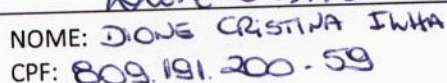 NOME: DIONE CRISTINA ILHA
CPF: 809.191.200-59